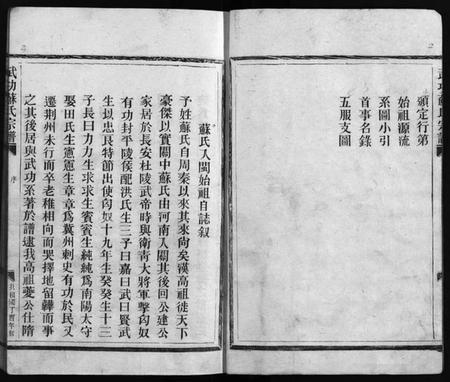 武功蘇氏宗譜
頭定行第
始祖源流
系圖小引
首事名錄
五服支圖
蘇氏入閩始祖自誌叙
子姓蘇氏自周秦以來其來尚矣漢高祖徙天下
豪傑以實關中蘇氏由河南入關其後回公建公
家居於長安杜陵武帝時與衛青大將軍擊匈奴
有功封平陵侯配洪氏生三子曰嘉曰武曰賢武
生以忠良特節出使匈奴十九年生癸癸生十三
子長曰力力生求求生賓賓生純純爲南陽太守
娶田氏生憲憲生章章爲冀州刺史有功於民又
遷荆州未行而卒老稚相向而哭擇地留葬而事
之其後居與武功系著於譜逮我高祖夔公仕隋
武功蘇氏宗譜
序
民國丁酉年